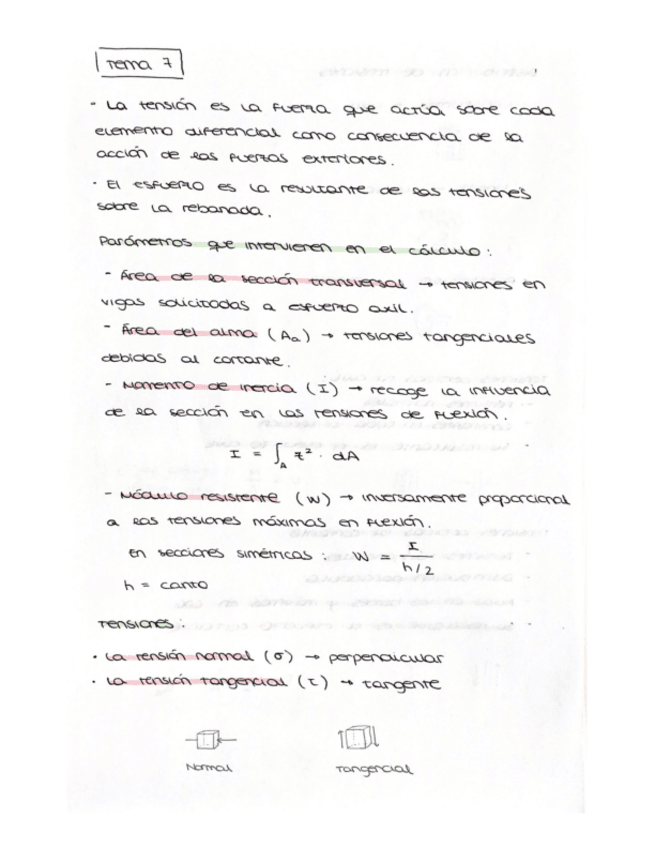 Tema 7
- La tensión es la fuerza que actúa sobre cada
elemento diferencial como consecuencia de la
acción de las fuerzas exteriores.
· El esfuerzo es la resultante de las tensiones
sobre la rebanada.
Parámetros que intervienen en el cálculo:
- Área de la sección transversal → tensiones en
vigas solicitadas a esfuerzo axil.
- Área del alma (Aa) → tensiones tangenciales
debidas al cortante.
- Momento de inercia (I) → recoge la influencia
de la sección en las tensiones de flexión.
I = ∫A z² · dA
- Módulo resistente (W) → inversamente proporcional
a las tensiones máximas en flexión.
en secciones simétricas: W = I / h/2
h = canto
Tensiones:
· La tensión normal (σ) → perpendicular
· La tensión tangencial (τ) → tangente
Normal Tangencial